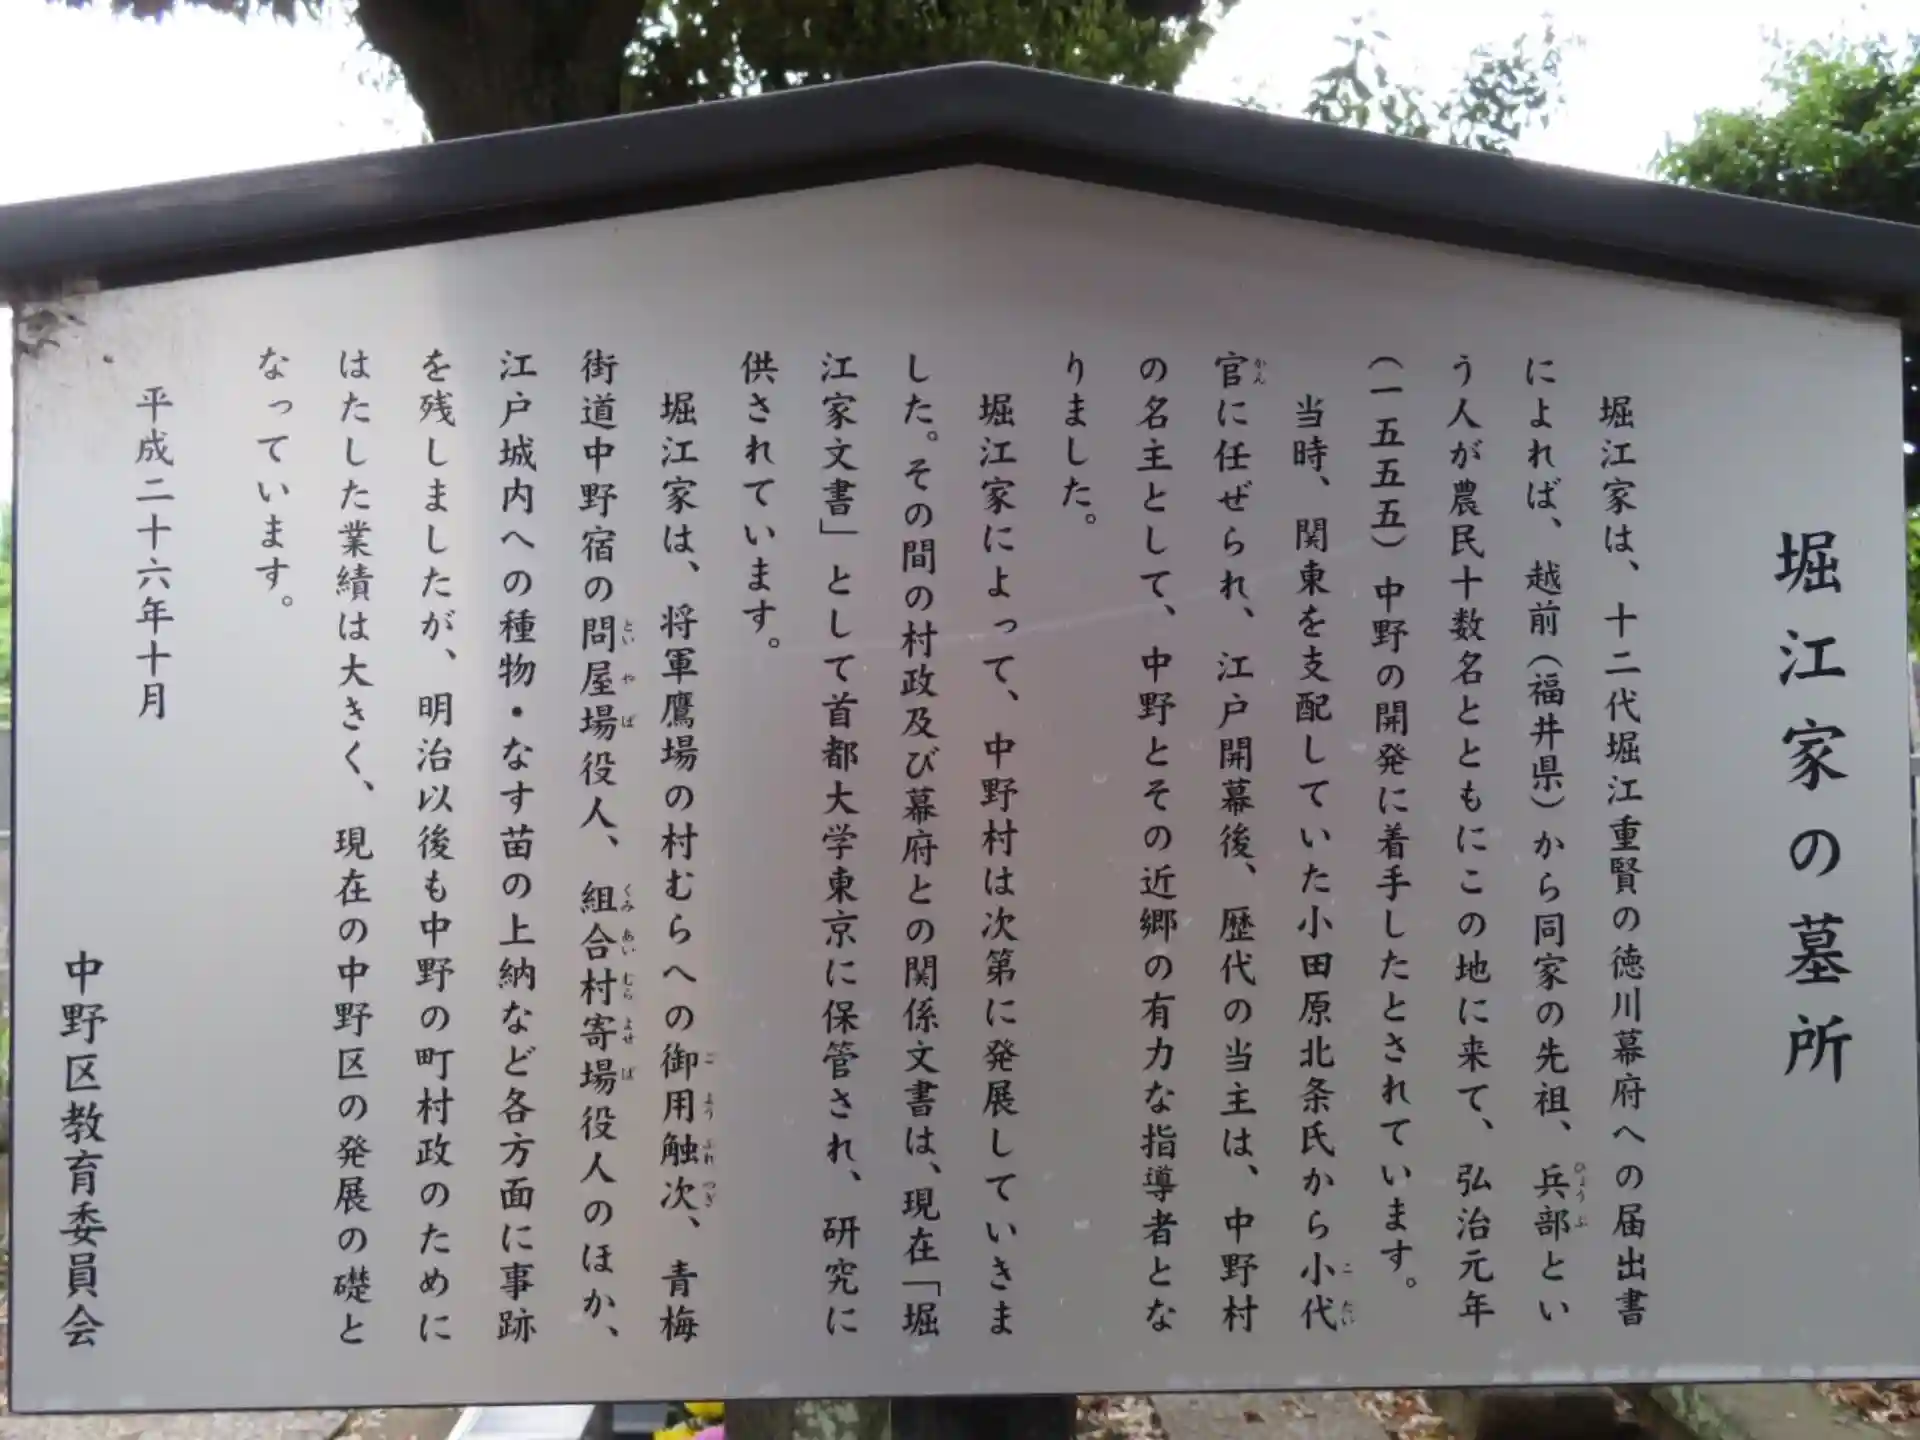 堀江家の墓所
堀江家は、十二代堀江重賢の徳川幕府への届出書
によれば、越前(福井県)から同家の先祖、兵部とい
う人が農民十数名とともにこの地に来て、弘治元年
(一五五五)中野の開発に着手したとされています。
当時、関東を支配していた小田原北条氏から小代
官に任ぜられ、江戸開幕後、歴代の当主は、中野村
の名主として、中野とその近郷の有力な指導者とな
りました。
堀江家によって、中野村は次第に発展していきま
した。その間の村政及び幕府との関係文書は、現在「堀
江家文書」として首都大学東京に保管され、研究に
供されています。
堀江家は、将軍鷹場の村むらへの御用触次、青梅
街道中野宿の問屋場役人、組合村寄場役人のほか、
江戸城内への種物・なす苗の上納など各方面に事跡
を残しましたが、明治以後も中野の町村政のために
はたした業績は大きく、現在の中野区の発展の礎と
なっています。
平成二十六年十月
中野区教育委員会